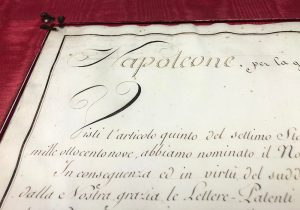 Napoleone, per la g
Visti l'articolo quinto del settimo
mille ottocentonove, abbiamo nominato il
In conseguenza ed in virtù del sudd
dalla Nostra grazia le Lettere-Patenti